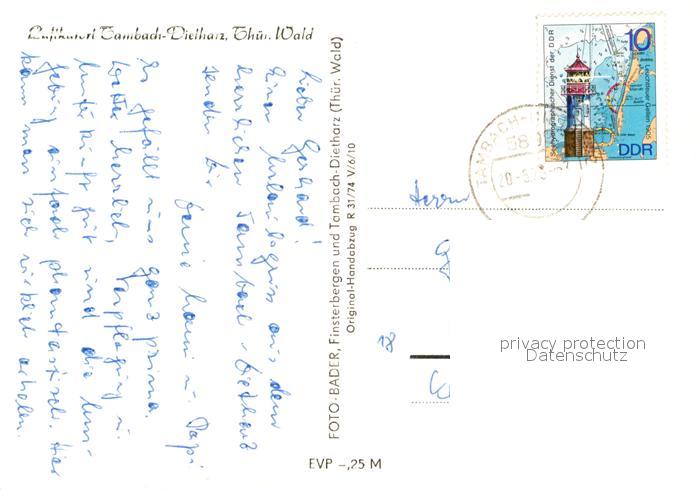 Luftkurort Tambach-Dietharz, Thür. Wald
Lieber Gerhard!
Einen Urlaubsgruss aus dem
herrlichen Tambach-Dietharz
senden Dir
Deine Mami u. Papi
Es gefällt uns ganz prima.
Wetter herrlich, Verpflegung u.
Unterkunft gut und die Um-
gebung einfach phantastisch. Hier
kann man sich wirklich erholen.
FOTO-BADER, Finsterbergen und Tambach-Dietharz (Thür. Wald)
Original-Handabzug R 31/74 V/6/10
EVP –,25 M
Seehydrographischer Dienst der DDR
10
Leuchtfeuer Gellen 1905
DDR
TAMBACH-
58
20.-3.75
Herrn
18
privacy protection
Datenschutz